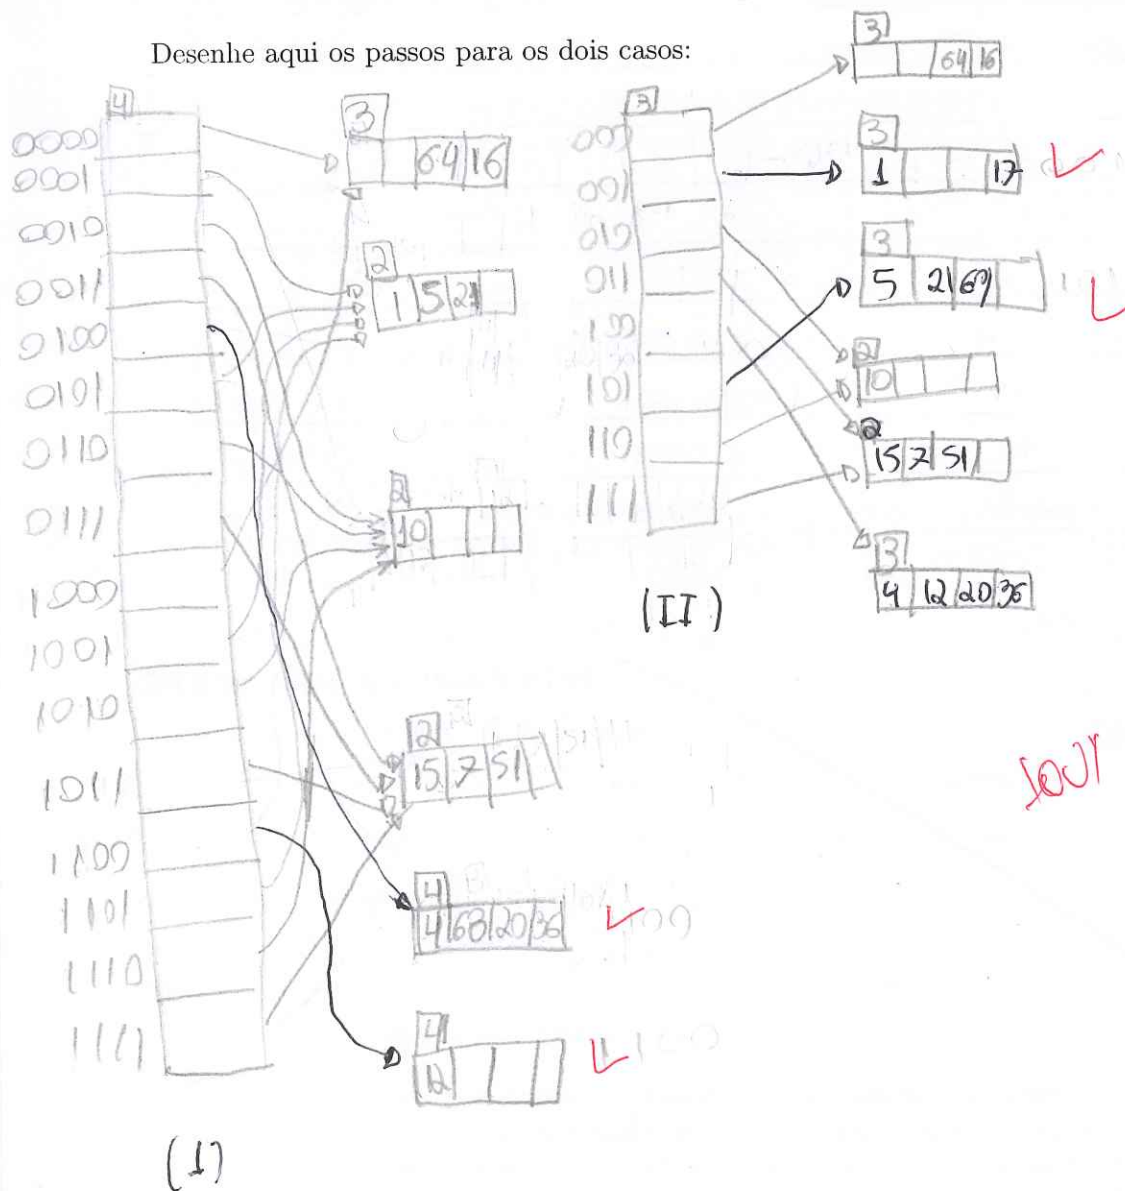 Desenhe aqui os passos para os dois casos:
4
0000
0001
0010
0011
0100
0101
0110
0111
1000
1001
1010
1011
1100
1101
1110
1111
3
64 16
2
1 5 21
2
10
2
15 7 51
4
4 68 20 36
4
12
(I)
3
000
001
010
011
100
101
110
111
3
64 16
3
1 17
3
5 21 69
2
10
2
15 7 51
3
4 12 20 36
(II)